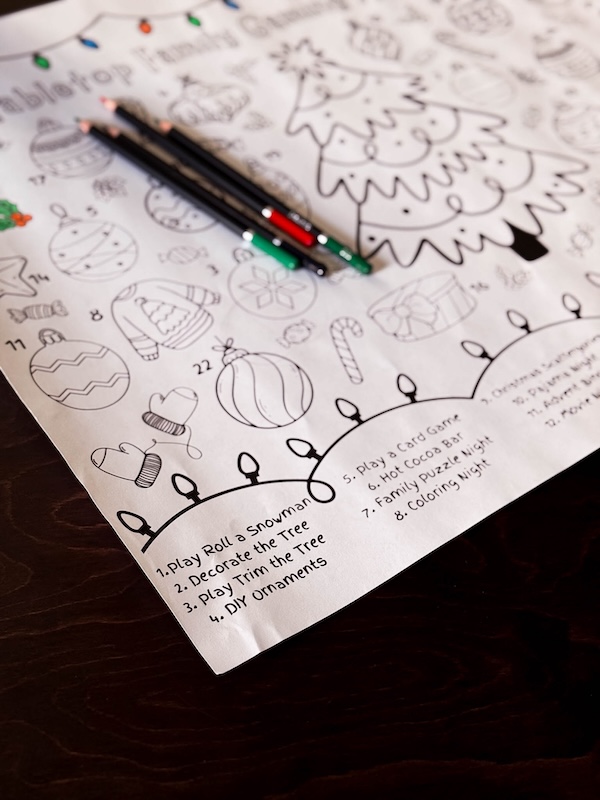 Tabletop Family Gaming
17
5
14
3
8
16
11
22
1.Play Roll a Snowman
2. Decorate the Tree
3. Play Trim the Tree
4. DIY Ornaments
5. Play a Card Game
6. Hot Cocoa Bar
7. Family Puzzle Night
8. Coloring Night
9. Christmas
10. Pajama Night
11. Advent
12. Movie